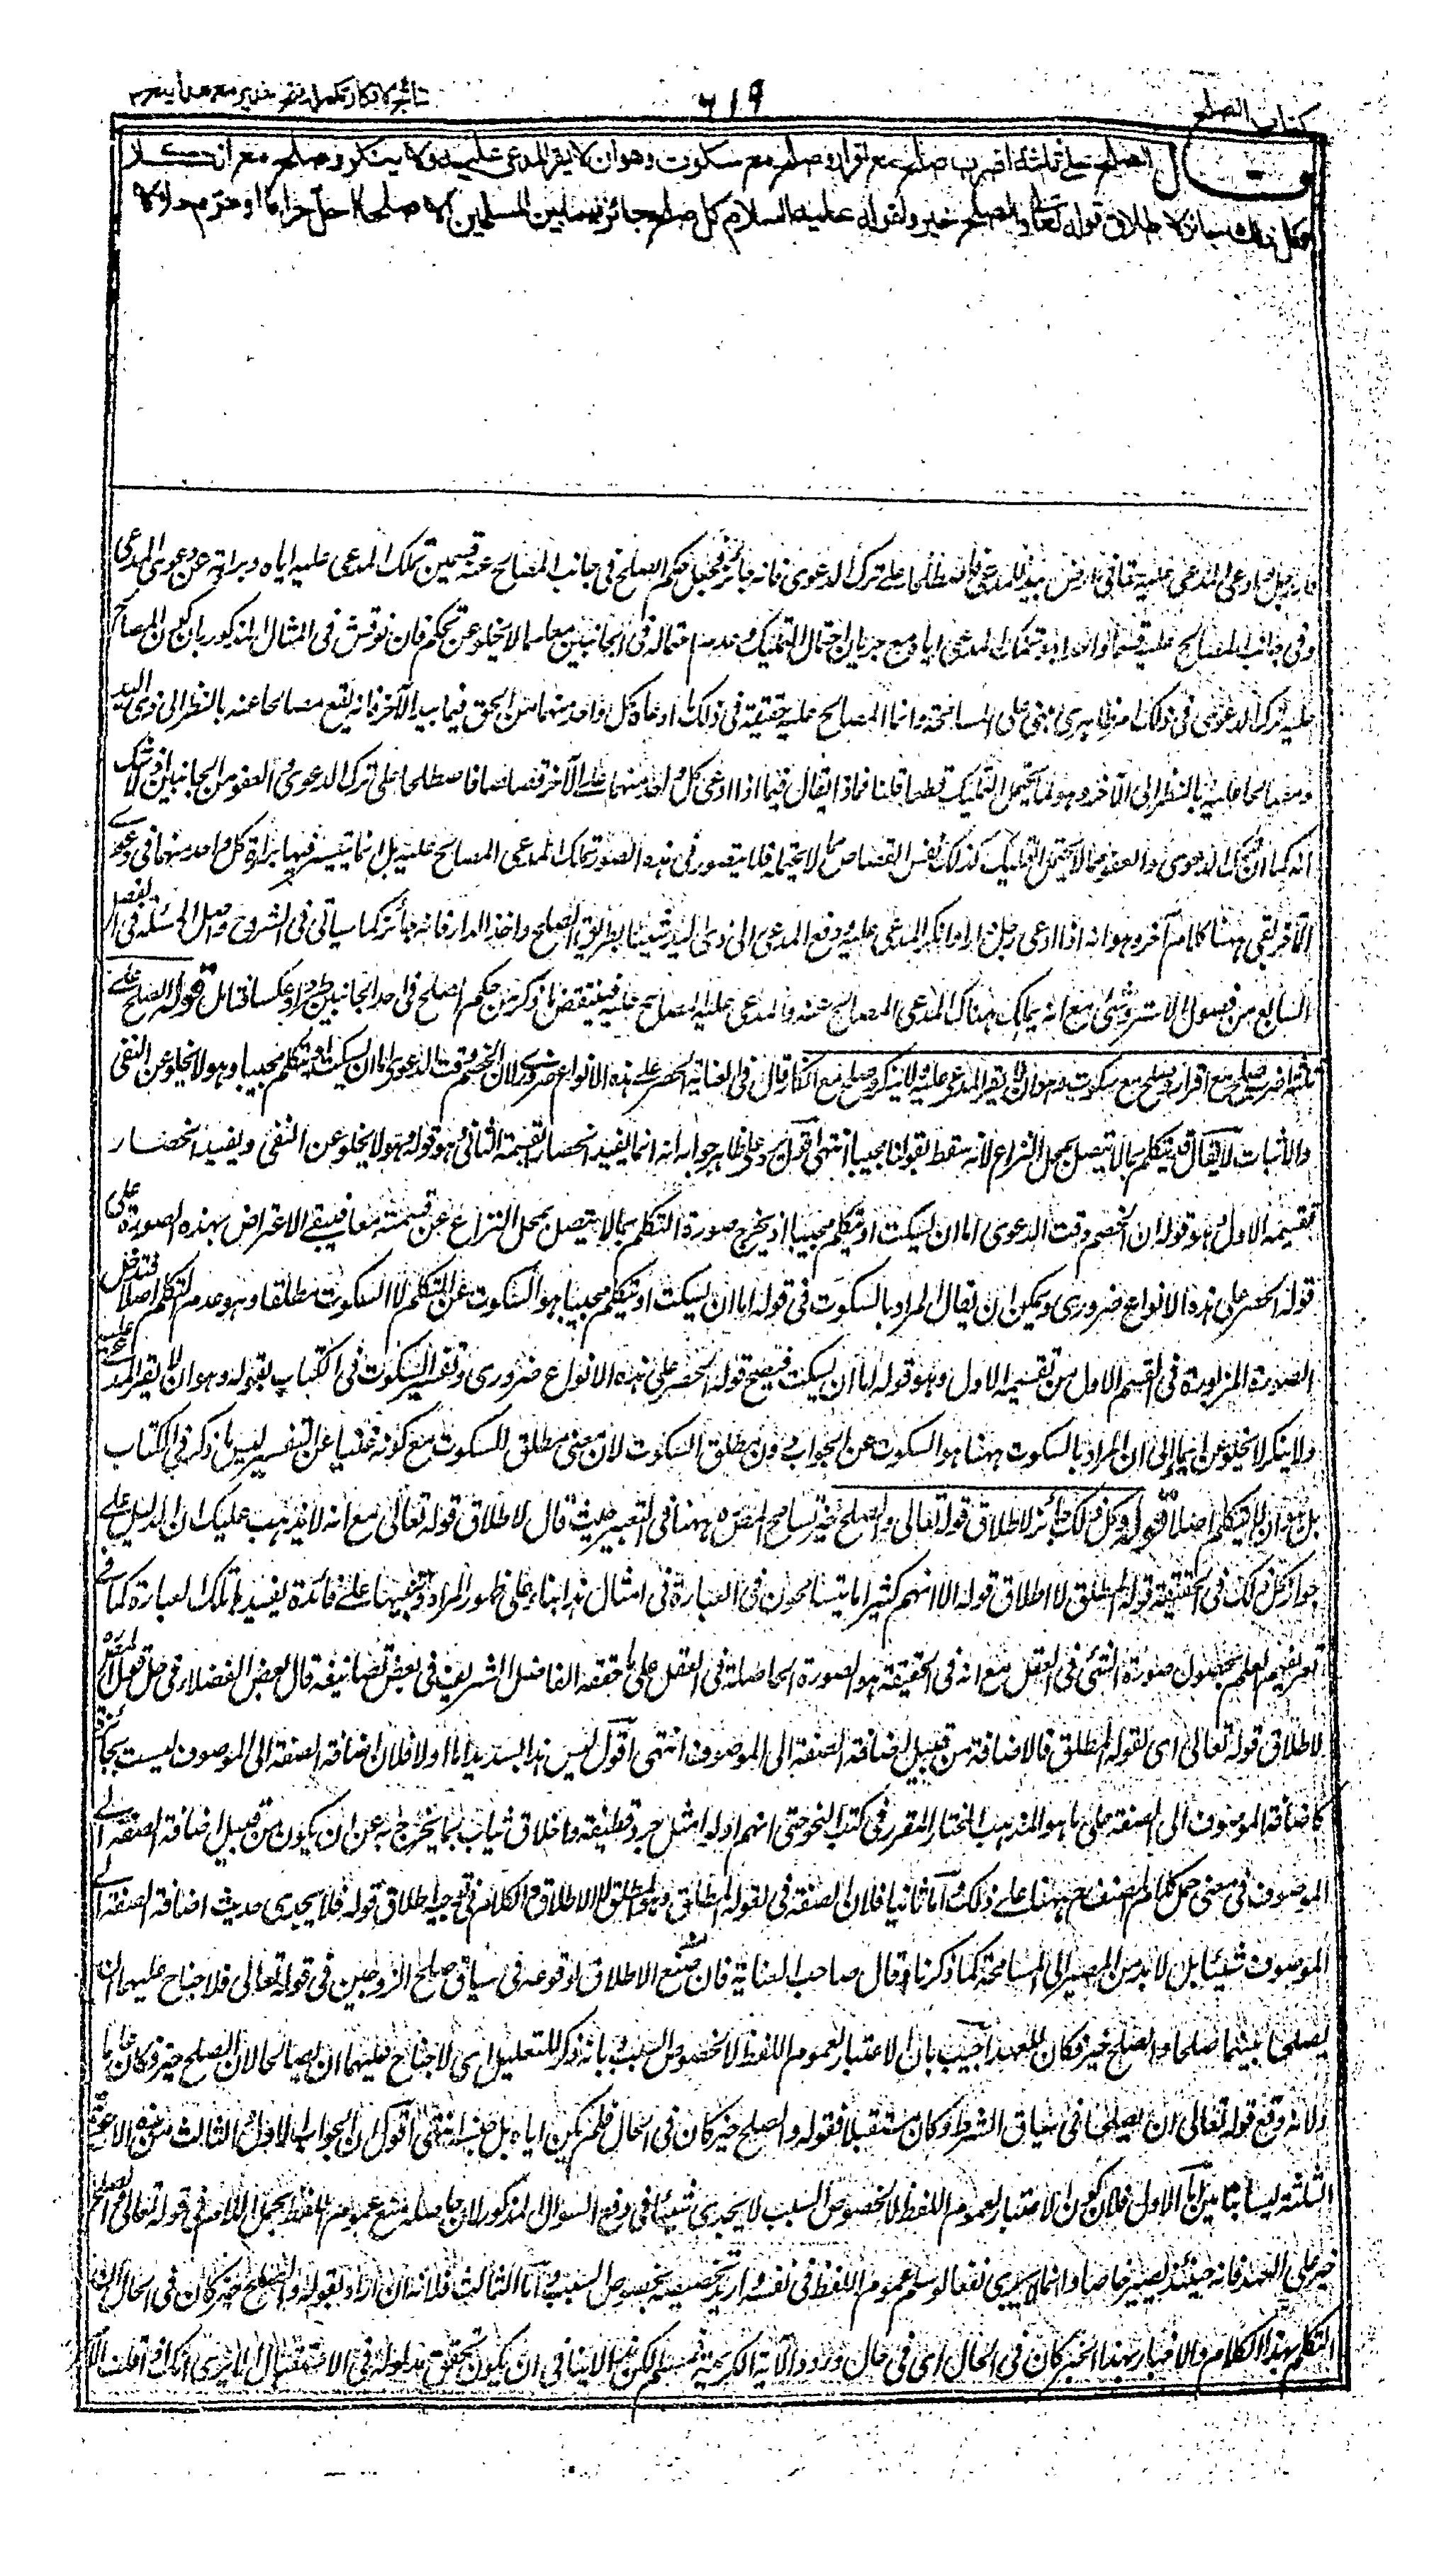 كتاب الصلح
٦١٩
نتائج الافكار تكملة فتح القدير مع هداية
قال الصلح على ثلثة اضرب صلح مع اقرار وصلح مع سكوت وهو ان لا يقر المدعى عليه ولا ينكر وصلح مع انكار
وكل ذلك جائز لاطلاق قوله تعالى والصلح خير ولقوله عليه السلام كل صلح جائز فيما بين المسلمين الا صلحا احل حراما او حرم حلالا
المدعى عليه ترك الدعوى فانه جائز فجعل حكم الصلح في جانب المصالح عنه قسمين تملك المدعى عليه اياه وبراءته عن دعوى المدعي
وفي جانب المصالح عليه قسما واحدا وهو تملك المدعي اياه مع جريان احتمال التمليك وعدم احتماله في الجانبين معا مما لا يخلو عن تحكم فان نوقش في المثال المذكور بان كون المصالح
عليه ترك الدعوى في ذلك امر ظاهري مبني على المسامحة وانما المصالح عليه حقيقة في ذلك ما ادعاه كل واحد منهما من الحق فيما بيد الآخر فانه يقع مصالحا عنه بالنظر الى ذي اليد
ومصالحا عليه بالنظر الى الآخر وهو مما يحتمل التمليك قطعا قلنا فماذا يقال فيما اذا ادعى كل واحد منهما على الآخر قصاصا فاصطلحا على ترك الدعوى والعفو من الجانبين ولا شك
انه كما ان ترك الدعوى والعفو مما لا يحتمل التمليك كذلك نفس القصاص مما لا يحتمله فلا يتصور في هذه الصورة تملك المدعي المصالح عليه بل انما يتيسر فيها براءة كل واحد منهما في دعوى
الآخر بقي ههنا كلام آخر وهو انه اذا ادعى رجل دارا وانكر المدعى عليه ودفع المدعي الى ذي اليد شيئا بطريق الصلح واخذ الدار فانه جائز كما سيأتي في الشروح واصل المسئلة في الفصل
السابع من فصول الاستروشني مع انه يملك هناك المدعي المصالح عنه والمدعى عليه المصالح عليه فينتقض ما ذكر من حكم الصلح في احد الجانبين طردا وعكسا تأمل قوله الصلح على
ثلثة اضرب صلح مع اقرار وصلح مع سكوت وهو ان لا يقر المدعى عليه ولا ينكر وصلح مع انكار قال في العناية الحصر على هذه الانواع ضروري لان الخصم وقت الدعوى اما ان يسكت او يتكلم مجيبا وهو لا يخلو عن النفي
والاثبات لا يقال قد يتكلم بما لا يتصل بمحل النزاع لانه سقط بقولنا مجيبا انتهى اقول يرد على ظاهر جوابه انه انما يفيد انحصار القسمة الثاني وهو قوله وهو لا يخلو عن النفي ويفيد انحصار
تقسيمه الاول وهو قوله ان الخصم وقت الدعوى اما ان يسكت او يتكلم مجيبا اذ يخرج صورة التكلم بما لا يتصل بمحل النزاع عن قسمته معا فيبقى الاعتراض بهذه الصورة على
قوله الحصر على هذه الانواع ضروري ويمكن ان يقال المراد بالسكوت في قوله اما ان يسكت او يتكلم مجيبا هو السكوت عن التكلم لا السكوت مطلقا وهو عدم التكلم اصلا فتدخل
الصورة المزبورة في القسم الاول من تقسيمه الاول وهو قوله اما ان يسكت فيصح قوله الحصر على هذه الانواع ضروري وتفسير السكوت في الكتاب بقوله وهو ان لا يقر المدعى عليه
ولا ينكر لا يخلو عن ايماء الى ان المراد بالسكوت ههنا هو السكوت عن الجواب دون مطلق السكوت لان معنى مطلق السكوت مع كونه غنيا عن التفسير ليس ما ذكر في الكتاب
بل هو ان لا يتكلم اصلا قوله وكل ذلك جائز لاطلاق قوله تعالى والصلح خير تسامح المص ره ههنا في التعبير حيث قال لاطلاق قوله تعالى مع انه لا يذهب عليك ان الدليل على
جواز كل ذلك في الحقيقة قوله المطلق لا اطلاق قوله الا انهم كثيرا ما يتسامحون في العبارة في امثال هذا بناء على ظهور المراد وتنبيها على فائدة يفيدها تلك العبارة كما في
تعريفهم العلم بحصول صورة الشيء في العقل مع انه في الحقيقة هو الصورة الحاصلة في العقل على ما حققه الفاضل الشريف في بعض تصانيفه قال بعض الفضلاء في حل قول المص
لاطلاق قوله تعالى اي لقوله المطلق فالاضافة من قبيل اضافة الصفة الى الموصوف انتهى اقول ليس هذا بسديد اما اولا فلان اضافة الصفة الى الموصوف ليست بجائزة
كاضافة الموصوف الى الصفة على ما هو المذهب المختار المقرر في كتب النحو حتى انهم اولوا مثل جرد قطيفة واخلاق ثياب بما يخرج به عن ان يكون من قبيل اضافة الصفة الى
الموصوف فما معنى حمل كلام المصنف ههنا على ذلك واما ثانيا فلان الصفة في لقوله المطلق هو المطلق لا الاطلاق والكلام في توجيه اطلاق قوله فلا يجدي حديث اضافة الصفة الى
الموصوف شيئا بل لابد من المصير الى المسامحة كما ذكرنا وقال صاحب العناية فان منع الاطلاق لوقوعه في سياق صلح الزوجين في قوله تعالى فلا جناح عليهما ان
يصلحا بينهما صلحا والصلح خير فكان للعهد اجيب بان الاعتبار لعموم اللفظ لا لخصوص السبب وبانه ذكر للتعليل اي لا جناح عليهما ان يصالحا لان الصلح خير وكان عاما
ولانه وقع قوله تعالى ان يصلحا في سياق الشرط وكان مستقبلا فقوله والصلح خير كان في الحال فلم يكن اياه بل جنسه انتهى اقول ان الجواب الاول والثالث من هذه الاجوبة
الثلثة ليسا بتامين اما الاول فلان كون الاعتبار لعموم اللفظ لا لخصوص السبب لا يجدي شيئا في دفع السؤال المذكور لان حاصله منع عموم اللفظ بحمل اللام في قوله تعالى والصلح
خير على العهد فانه حينئذ يصير خاصا وانما يجدي نفعا لو سلم عموم اللفظ في نفسه واريد تخصيصه بخصوص السبب واما الثالث فلانه ان اراد بقوله والصلح خير كان في الحال ان
التكلم بهذا الكلام والاخبار بهذا الخبر كان في الحال اي في حال ورود الآية الكريمة فمسلم لكن هذا لا ينافي ان يكون تحقق مدلوله في الاستقبال الا يرى انك لو قلت